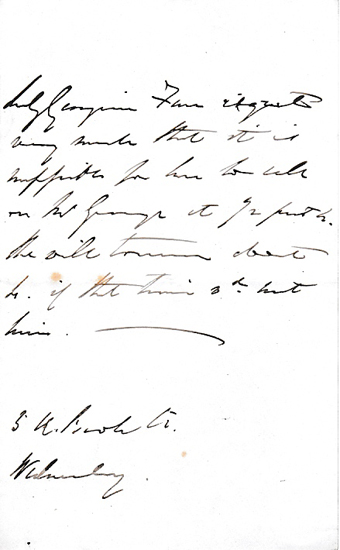 Lady Georgiana Fane regrets
very much that it is
impossible for her to call
on Mr George at ½ past 4.
She will tomorrow about
4. if that time wd. suit
him.
5 U. Brook St.
Wednesday.